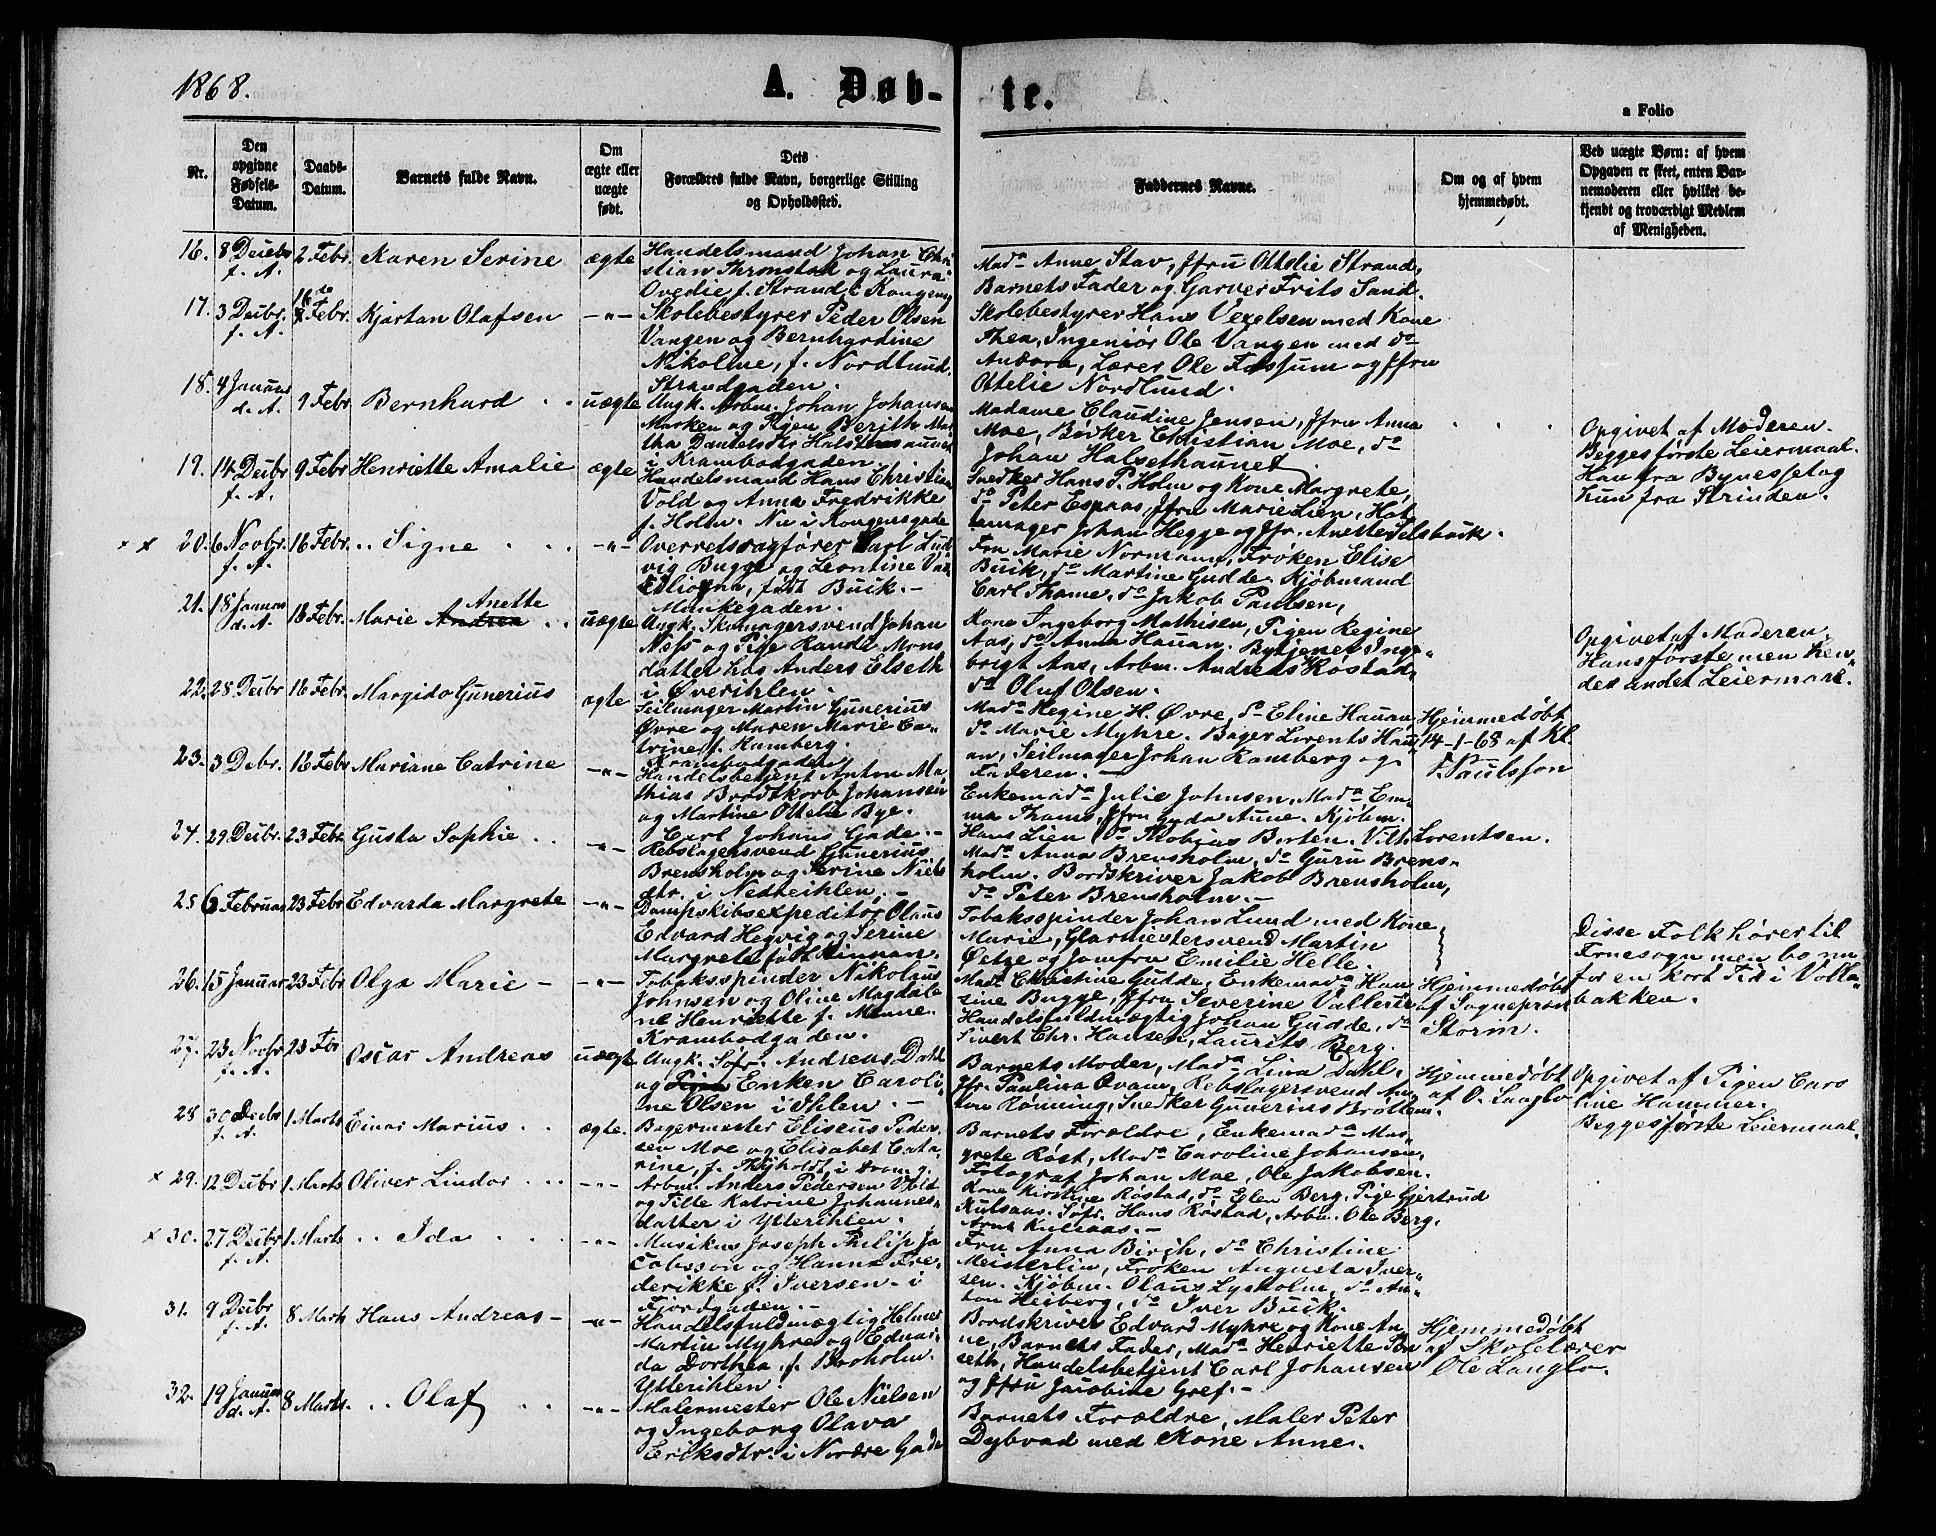 1868.
A. Døb-
te.
a Folio
Nr.
Den opgivne Fødsels-Datum.
Daabs-Datum.
Barnets fulde Navn.
Om ægte eller uægte født.
Dets Forældres fulde Navn, borgerlige Stilling og Opholdssted.
Faddernes Navne.
Om og af hvem hjemmedøbt.
Ved uægte Børn: af hvem Opgaven er skeet, enten Barnemoderen eller hvilket bekjendt og troværdigt Medlem af Menigheden.
16. 8 Decbr f. A. 2 Febr. Karen Serine ægte
Handelsmand Johan Chri
stian Thronstad og Laura
Ovedie f. Strand, i Kongensg
Mada Anne Stav, Jfru Ottelie Strand,
Barnets Fader og Garver Frits Sand.
17. 3 Decbr. f. A. 16de Febr. Kjartan Olafsen -"-
Skolebestyrer Peder Olsen
Vangen og Bernhardine
Nikoline, f. Nordlund,
Strandgaden.
Skolebestyrer Hans Vexelsen med Kone
Thea, Ingeniør Ole Vangen med do
Lærer Ole Fossum og Jfru
Ottelie Nordlund.
18. 4 Januar d. A. 9 Febr Bernhard . . uægte
Ungk. Arbm. Johan Johansen
Marken og Pigen Berith Mar
tha Danielsdtr Halsethaunet
i Krambodgaden.
Madame Claudine Jensen, Jfru Anna
Moe, Bødker Christian Moe, do
Johan Halsethaunet.
Opgivet af Moderen.
Begges første Leiermaal.
Han fra Bynesset og
hun fra Strinden.
19. 14 Decbr f. A. 9 Febr Henriette Amalie ægte
Handelsmand Hans Christian
Vold og Anna Fredrikke
f. Holm. Nu i Kongensgade
Snedker Hans P. Holm og Kone Margrete,
do Peter Espaas, Jfru Marie Lien, Hat
temager Johan Hegge og Jfr. Anette Selsbuik.
x x 20. 6 Novbr. f. A. 16 Febr. . . Signe . . . -"-
Overretssagfører Carl Lud
vig Bugge og Leontine Va
, født Buck. -
Munkegaden.
Fru Marie Normann, Frøken Elise
Buck, do Martine Gudde. Kjøbmand
Carl Thame, do Jakob Paulsen,
21. 18 Januar d. A. 16 Febr. Marie Anette Andrea . . uægte
Ungk. Skomagersvend Johan
Næss og Pige Randi Mons
datter hos Anders Elseth
i Øverihlen.
Kone Ingeborg Mathisen, Pigen Regine
Aas, do Anna Hauan. Bytjener Inge-
brigt Aas, Arbm. Andreas Rostad,
do Oluf Olsen.
Opgivet af Moderen.
Hans første men hen-
des andet Leiermaal.
22. 28 Decbr 16 Febr. Margido Gunerius ægte
Seilmager Martin Gunerius
Øvre og Maren Marie Ca-
trine f. Ramberg.
Krambodgaden
Mada Regine H. Øvre, do Eline Hauan,
do Marie Myhre. Bager Lorents Hau
an, Seilmager Johan Ramberg og
Faderen. -
Hjemmedøbt
14-1-68 af Kl.
Paulsson
23. 3 Debr. 16 Febr Mariane Catrine -"-
Handelsbetjent Anton Ma
thias Brodtkorb Johansen
og Martine Ottelie Bye.
Carl Johans Gade. -
Enkemada Julie Johnsen, Mada Em-
ma Thams, Jfru Gyda Aune. Kjøbm.
Hans Lien do Thobias Borten. Vilh. Lorentsen.
24. 29 Decbr. 23 Febr Gusta Sophie . . -"-
Rebslagersvend Gunerius
Brensholm og Serine Niels
dtr. i Nedreihlen. -
Mada Anna Brensholm, do Guru Brens-
holm. Bordskriver Jakob Brensholm,
do Peter Brensholm. -
25 6 Februar 23 Febr Edvarda Margrete -"-
Dampskibsexpeditør Olaus
Edvard Hegvig og Serine
Margrete født Finnan.
Tobaksspinder Johan Lund med Kone
Marie, Glarmestersvend Martin
Øetze og Jomfru Emilie Helle.
Disse Folk hører til
sogn men bo nu
for en kort Tid i Volla-
bakken.
26. 15 Januar 23 Febr Olga Marie - -"-
Tobaksspinder Nikolaus
Johnsen og Oline Magdale
ne Henriette f. Minne.
Krambodgaden.
Mada Christine Gudde, Enkemada Han
sine Bugge, Jfru Severine Vallerie
Handelsfuldmægtig Johan Gudde, do
Sivert Chr. Hansen, Laurits Berg.
Hjemmedøbt
af Sogneprest
Storm.
27. 23 Novbr f. A. 23 Febr Oscar Andreas uægte
Ungk. Søfr. Andreas Dahl
og Pigen Enken Caroli
ne Olsen i Ihlen. -
Barnets Moder, Mada Lina Dahl,
Jfr. Paulina Qvam, Rebslagersvend An
ton Rønning, Snedker Gunerius Brøttem.
Hjemmedøbt
af O. Langlo
Opgivet af Pigen Caro
line Hammer.
Begges første Leiermaal.
28 30 Decbr f. A. 1 Marts Einar Marius . . ægte.
Bagermester Eliseus Peder-
sen Moe og Elisabet Cata
rine, f. Thyholdt, i Dronn. g.
Barnets Forældre, Enkemada Mar-
grete Røst, Mada Caroline Johansen,
Fotograf Johan Moe, Ole Jakobsen.
x 29. 12 Decbr 1 Marts Oliver Lindor . . . -"-
Arbm. Anders Pedersen Veit
og Pige Katrine Johannes-
datter i Ytterihlen.
Kone Kirstine Røstad, do Elen Berg, Pige Gjertrud
Kulsaas. Søfr. Hans Røstad, Arbm. Ole Berg.
Arnt Kulsaas. -
x 30. 27 Decbr f. A. 1 Marts . . Ida . . . -"-
Musikus Joseph Philip Ja
cobsson og Hanna Fre-
derikke f. Iversen - i
Fjordgaden. -
Fru Anna Birch, do Christine
Meisterlin, Frøken Augusta Iver-
sen. Kjøbm. Olaus Lysholm, do An-
ton Heiberg, do Iver Buck.
31. 9 Decbr f. A. 8 Marts Hans Andreas - -"-
Handelsfuldmægtig Helmer
Martin Myhre og Edvar
da Dorthea f. Borholm.
Ytterihlen.
Bordskriver Edvard Myhre og Kone An-
ne, Barnets Fader, Mada Henriette
seth, Handelsbetjent Carl Johansen
og Jfru Jacobine Gref. -
Hjemmedøbt
af Skolelærer
Ole Langlo.
32. 19 Januar d. A. 8 Marts. . . Olaf . . -"-
Malermester Ole Nielsen
og Ingeborg Olava
Eriksdtr. i Nordre Gade
Barnets Forældre, Maler Peter
Dybvad med Kone Anne.